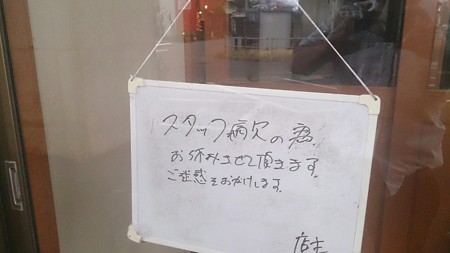 スタッフ病欠の為、
お休みさせて頂きます。
ご迷惑をおかけします。
店主